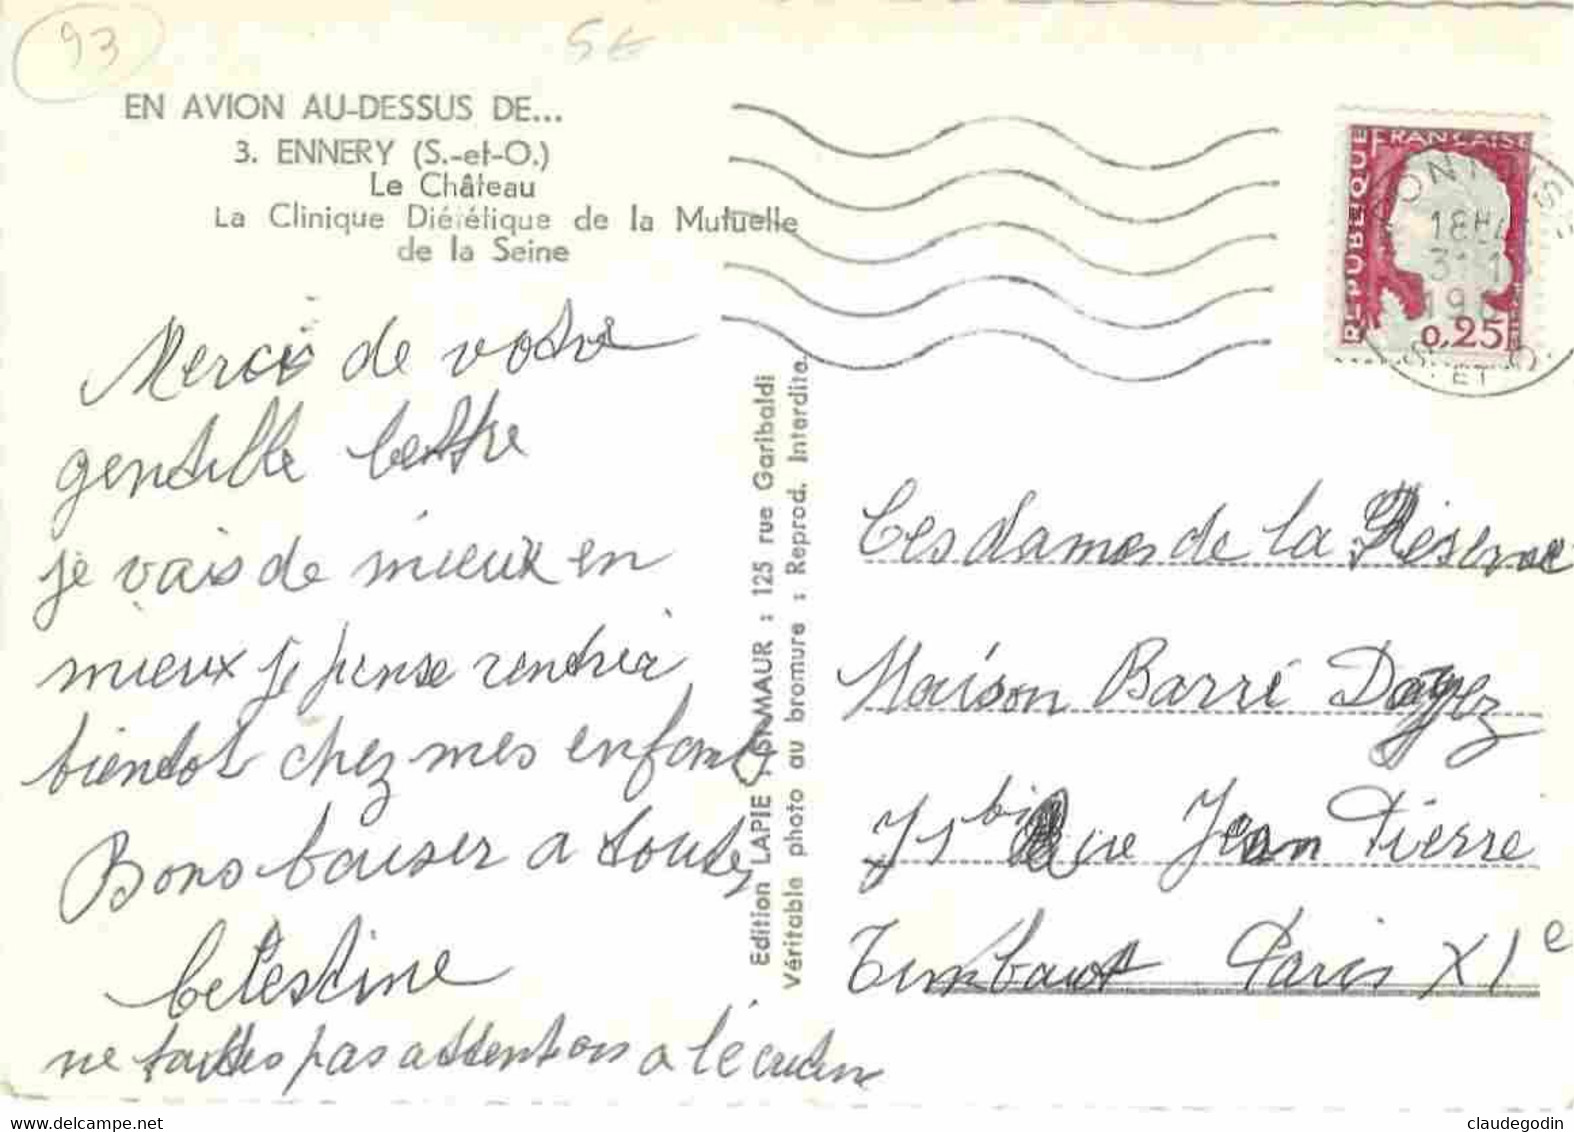 93
5€
EN AVION AU-DESSUS DE...
3. ENNERY (S.-et-O.)
Le Château
La Clinique Diététique de la Mutuelle
de la Seine
Merci de votre
gentille lettre
je vais de mieux en
mieux je pense rentrer
bientot chez mes enfants
Bons baiser a toutes
Celestine
ne faittes pas attentions a l'écriture
Edition LAPIE ST-MAUR : 125 rue Garibaldi
Véritable photo au bromure : Reprod. Interdite.
REPUBLIQUE FRANÇAISE
0,25F
18H
31
19
S. ET O.
Ces dames de la Réserve
Maison Barré Dayez
71 bis rue Jean Pierre
Timbaut Paris XIe
delcampe.net
claudegodin